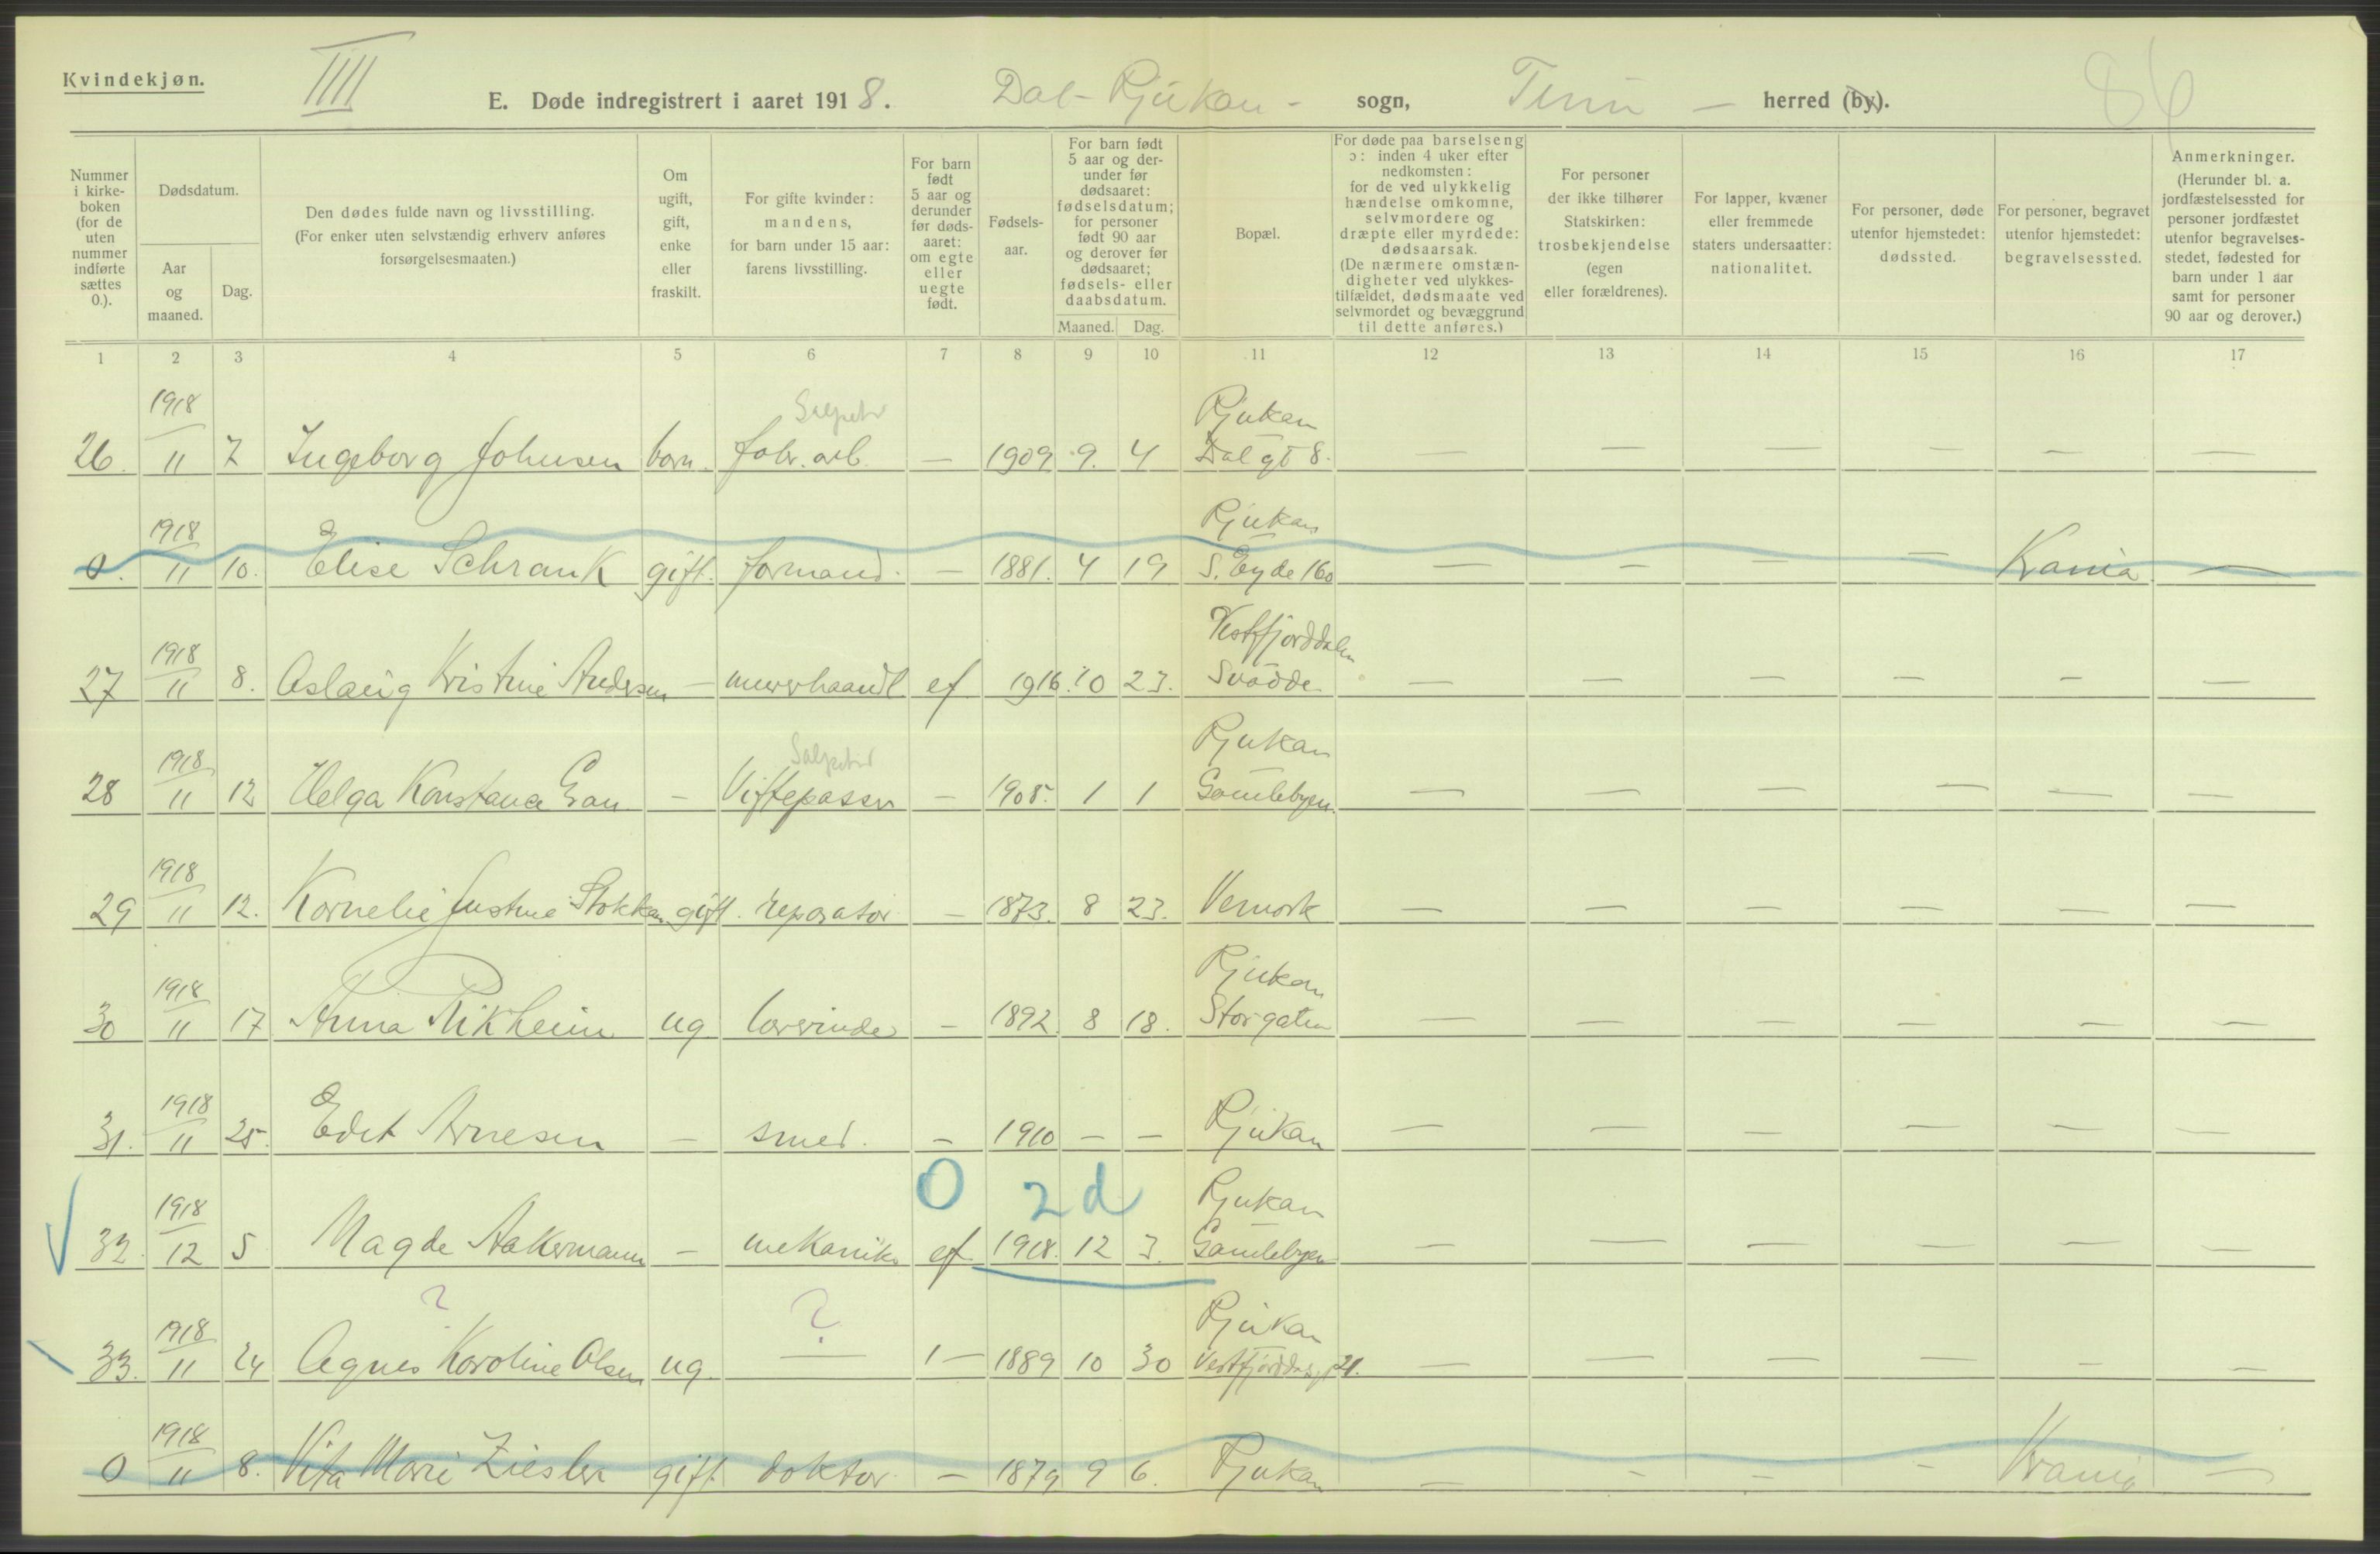 Kvindekjøn.
IIII
E. Døde indregistrert i aaret 1918. Dal-Rjukan - sogn, Tinn — herred (by).
86
Nummer i kirkeboken (for de uten nummer indførte sættes 0.).
Dødsdatum.
Aar og maaned.
Dag.
Den dødes fulde navn og livsstilling. (For enker uten selvstændig erhverv anføres forsørgelsesmaaten.)
Om ugift, gift, enke eller fraskilt.
For gifte kvinder: mandens, for barn under 15 aar: farens livsstilling.
For barn født 5 aar og derunder før dødsaaret: om egte eller uegte født.
Fødselsaar.
For barn født 5 aar og derunder før dødsaaret: fødselsdatum; for personer født 90 aar og derover før dødsaaret; fødsels- eller daabsdatum.
Maaned. Dag.
Bopæl.
For døde paa barselseng ɔ: inden 4 uker efter nedkomsten: for de ved ulykkelig hændelse omkomne, selvmordere og dræpte eller myrdede: dødsaarsak. (De nærmere omstændigheter ved ulykkestilfældet, dødsmaate ved selvmordet og bevæggrund til dette anføres.)
For personer der ikke tilhører Statskirken: trosbekjendelse (egen eller forældrenes).
For lapper, kvæner eller fremmede staters undersaatter: nationalitet.
For personer, døde utenfor hjemstedet: dødssted.
For personer, begravet utenfor hjemstedet: begravelsessted.
Anmerkninger. (Herunder bl. a. jordfæstelsessted for personer jordfæstet utenfor begravelsesstedet, fødested for barn under 1 aar samt for personer 90 aar og derover.)
1 2 3 4 5 6 7 8 9 10 11 12 13 14 15 16 17
1918 Salpeter Rjukan
26. 11 7 Ingeborg Johnsen barn. fabr. arb. — 1909 9. 4 Dal gt 8. — — — — — —
1918 Rjukan
0. 11 10. Elise Schrank gift. formand. — 1881. 4 19 S. Eyde 160 — — — — Kania —
1918 Vestfjorddalen
27 11 8. Aslaug Kristine Andersen — murerhaandl ef 1916. 10 23. Svadde — — — — — —
1918 Salpeter Rjukan
28 11 12 Helga Konstance Gran — Viftepasser — 1908. 1 1 Gamlebyen. — — — — — —
1918
29 11 12. Kornelie Justine Stokkan gift. reparatør — 1873. 8 23. Vemork — — — — — —
1918 Rjukan
30 11 17 Anna Rikheim ug lærerinde — 1892. 8 18. Storgaten — — — — — —
1918
31. 11 25. Edit Arnesen — smed. — 1910 — — Rjukan — — — — — —
0 2 d
1918 Rjukan
32. 12 5 Magde Aakermann — mekanik. ef 1918. 12 3. Gamlebyen — — — — — —
? ?
1918 Rjukan
33. 11 24 Agnes Karoline Olsen ug. — 1 — 1889 10 30 Vestfjorddalsgt 21. — — — — — —
1918
0 11 8. Vita Marie Ziesler gift doktor — 1879 9 6. Rjukan — — — — Krania —